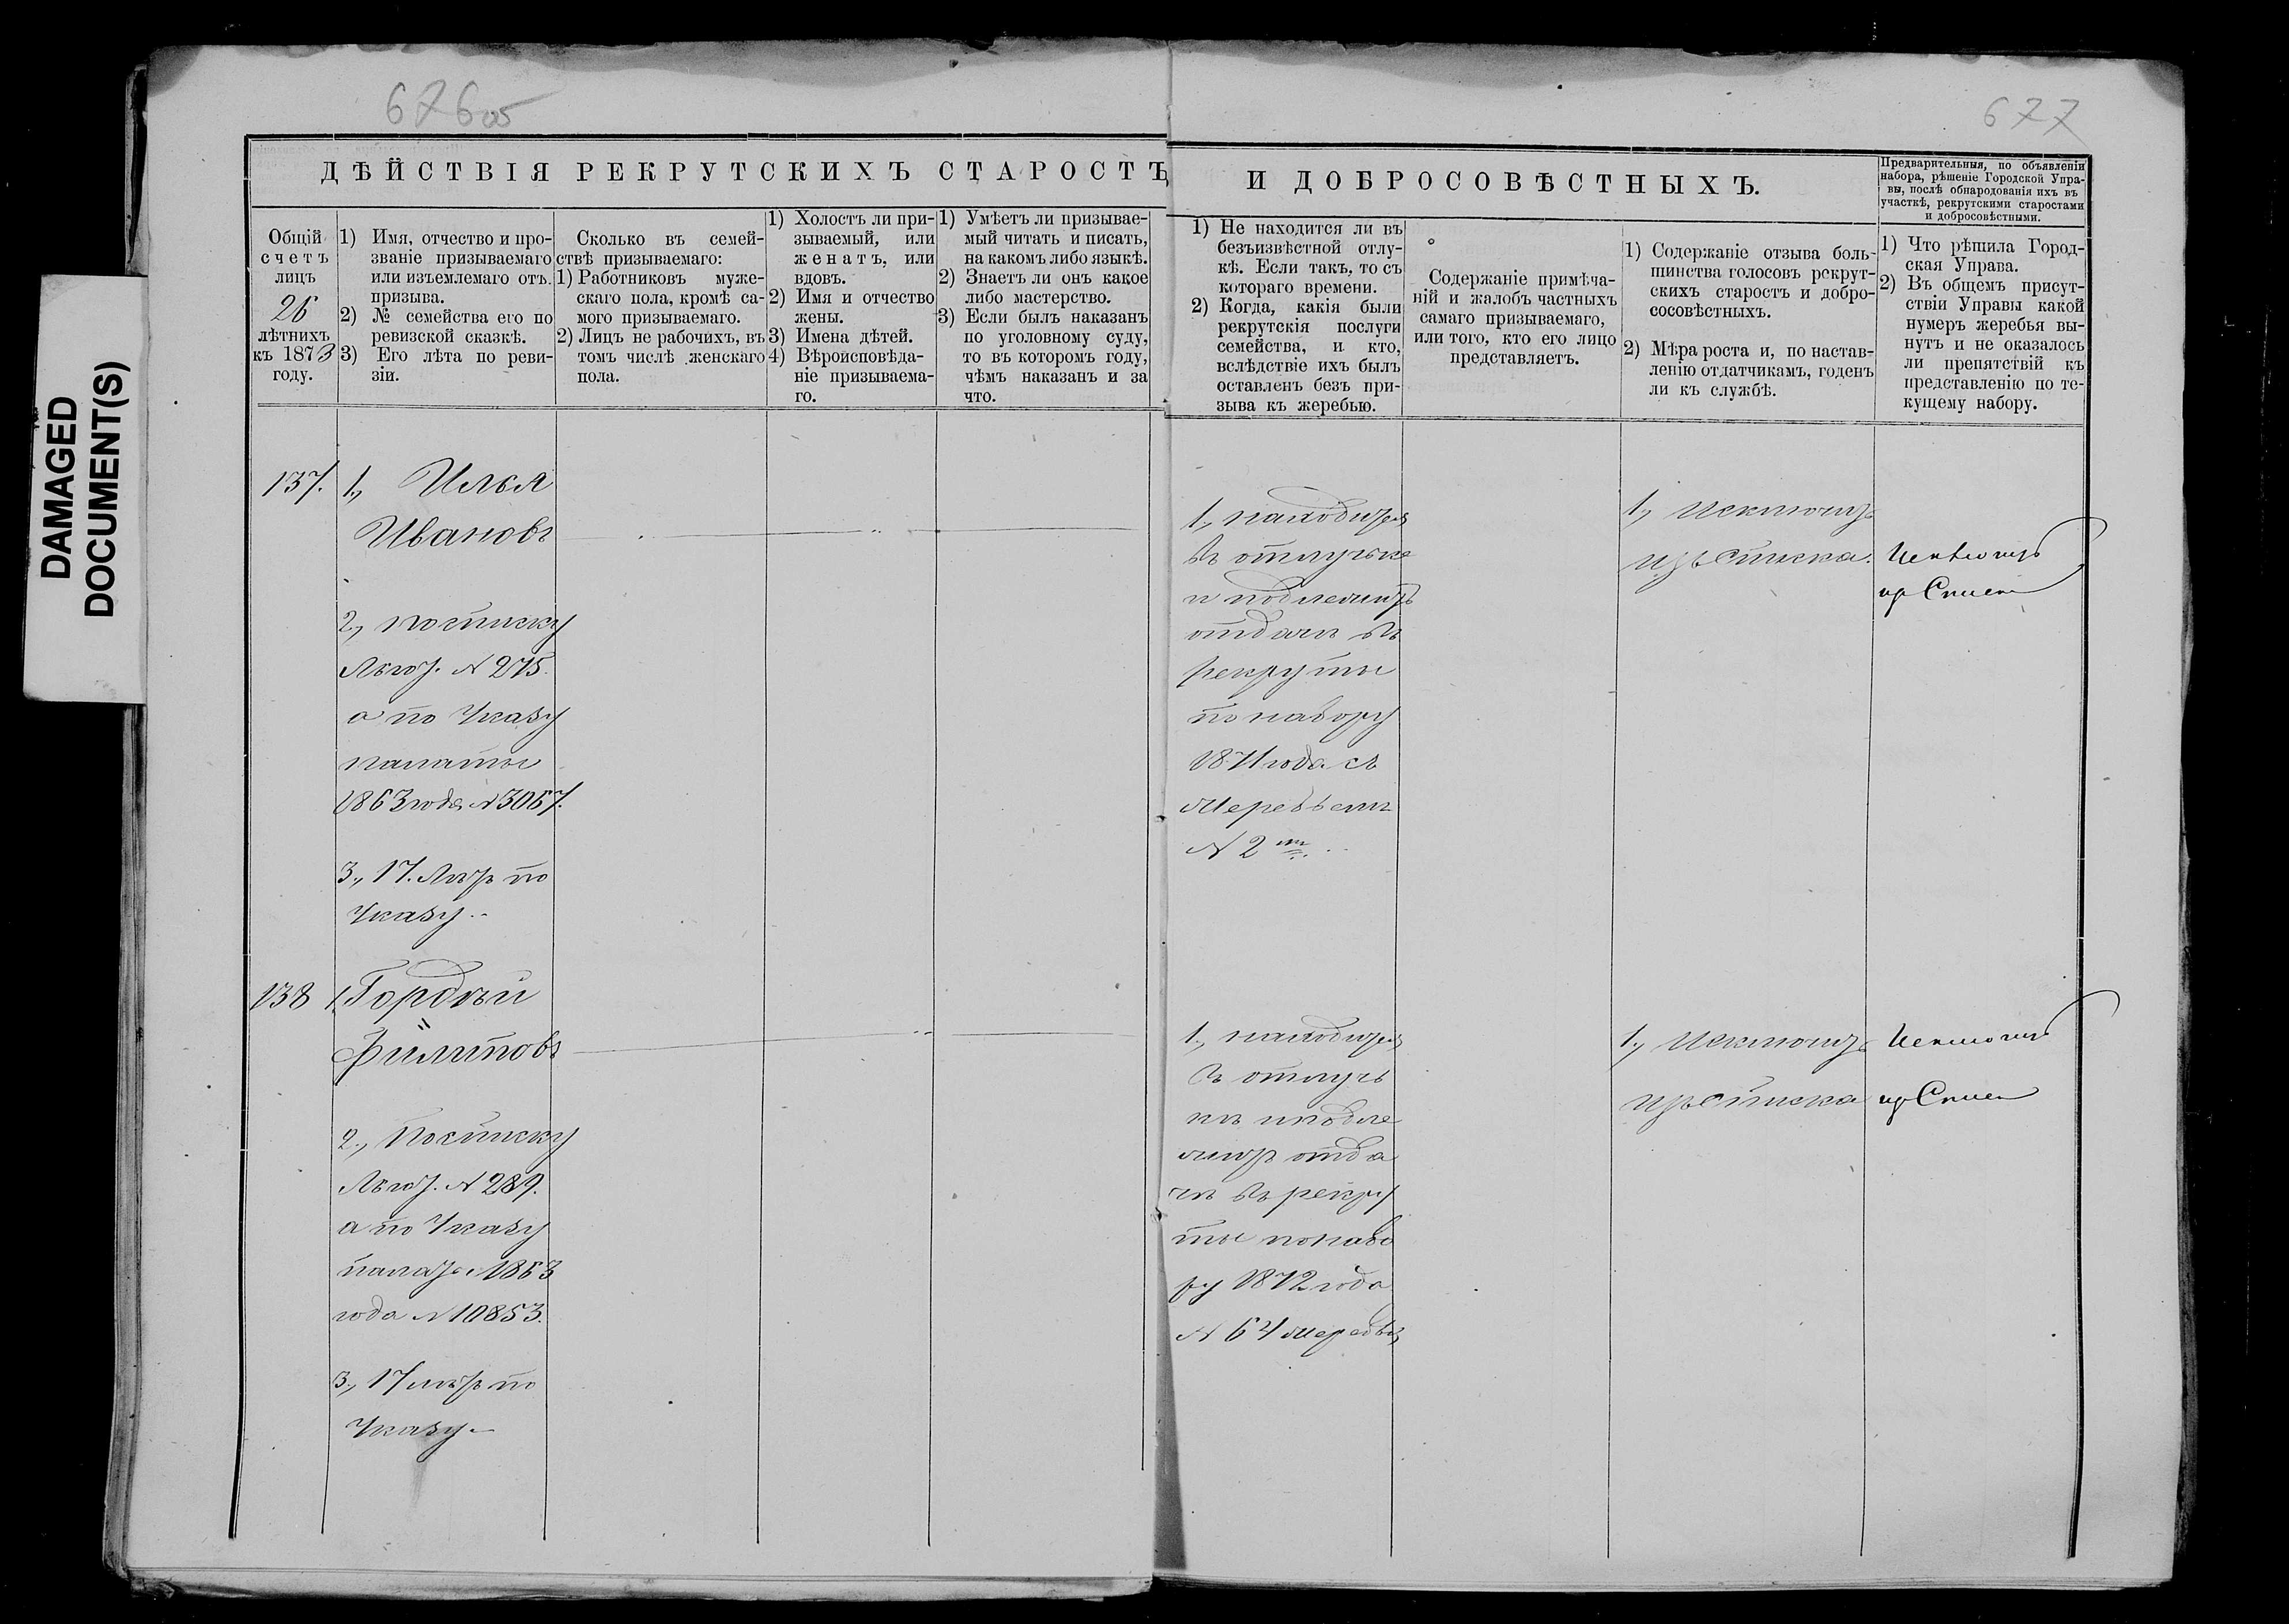 DAMAGED
DOCUMENT(S)
676об
677
ДѢЙСТВІЯ РЕКРУТСКИХЪ СТАРОСТЪ
И ДОБРОСОВѢСТНЫХЪ.
Предварительныя, по объявленіи
набора, рѣшеніе Городской Упра-
вы, послѣ обнародованія ихъ въ
участкѣ, рекрутскими старостами
и добросовѣстными.
Общій
счетъ
лицъ
26
лѣтнихъ
къ 1873
году.
1) Имя, отчество и про-
званіе призываемаго
или изъемлемаго отъ
призыва.
2) № семейства его по
ревизской сказкѣ.
3) Его лѣта по реви-
зіи.
Сколько въ семей-
ствѣ призываемаго:
1) Работниковъ муже-
скаго пола, кромѣ са-
мого призываемаго.
2) Лицъ не рабочихъ, въ
томъ числѣ женскаго
пола.
1) Холостъ ли при-
зываемый, или
женатъ, или
вдовъ.
2) Имя и отчество
жены.
3) Имена дѣтей.
4) Вѣроисповѣда-
ніе призываема-
го.
1) Умѣетъ ли призывае-
мый читать и писать,
на какомъ либо языкѣ.
2) Знаетъ ли онъ какое
либо мастерство.
3) Если былъ наказанъ
по уголовному суду,
то въ которомъ году,
чѣмъ наказанъ и за
что.
1) Не находится ли въ
безъизвѣстной отлу-
кѣ. Если такъ, то съ
котораго времени.
2) Когда, какія были
рекрутскія послуги
семейства, и кто,
вслѣдствіе ихъ былъ
оставленъ безъ при-
зыва къ жеребью.
Содержаніе примѣча-
ній и жалобъ частныхъ
самаго призываемаго,
или того, кто его лицо
представляетъ.
1) Содержаніе отзыва боль-
шинства голосовъ рекрут-
скихъ старостъ и добро-
сосовѣстныхъ.
2) Мѣра роста и, по настав-
ленію отдатчикамъ, годенъ
ли къ службѣ.
1) Что рѣшила Город-
ская Управа.
2) Въ общемъ присут-
ствіи Управы какой
нумеръ жеребья вы-
нутъ и не оказалось
ли препятствій къ
представленію по те-
кущему набору.
137.
1., Илья
Ивановъ
2., по списку
Льгот. № 275.
а по Указу
палаты
1863 года № 3067.
3., 17. Лѣтъ по
Указу..
1., находится
въ отлучке
и подлежитъ
отдачѣ въ
рекруты
по набору
1871 года съ
жеребьемъ
№ 2 мъ
1., Исключить
изъ списка.
Исключить
из Списка
138
1. Гордѣй
Филиповъ
2., По списку
Льгот. № 289.
а по Указу
палаты 1863
года № 10853.
3., 17 лѣтъ по
Указу
1., находится
въ отлуч
кѣ и подле
житъ отда
чѣ въ рекру
ты по набо
ру 1872 года
№ 64 жеребья
1., Исключить
изъ списка
Исключить
из Списка